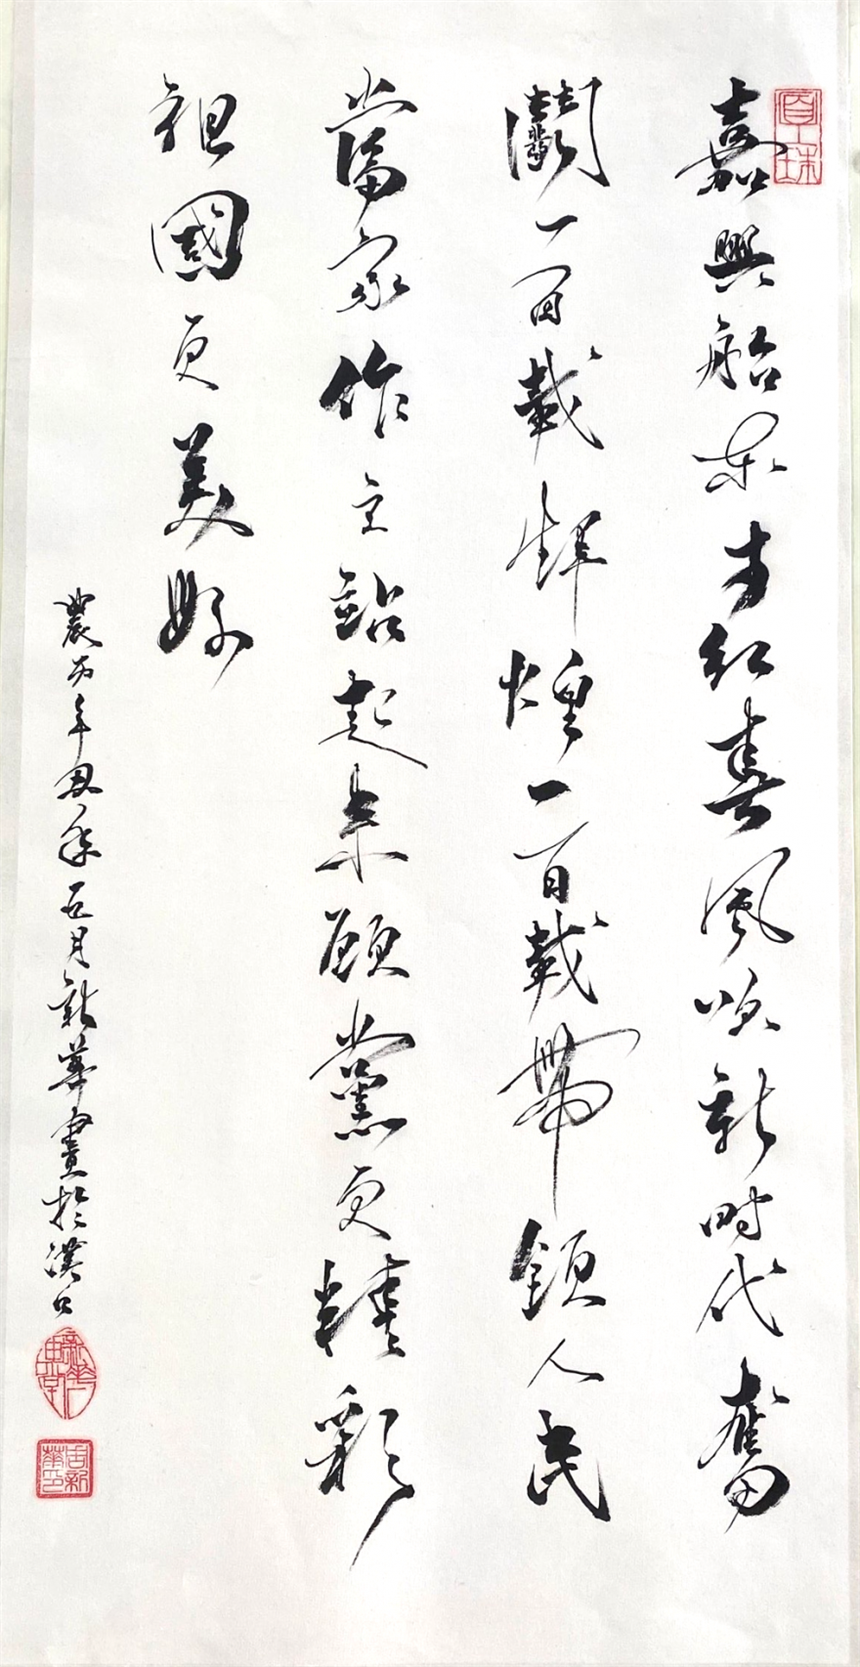 嘉興船東方紅春風吹新時代奮
鬪一百載輝煌一百載帶領人民
當家作主站起來願黨更精彩
祖國更美好
農历年丑年五月新華書於漢口
周新華印